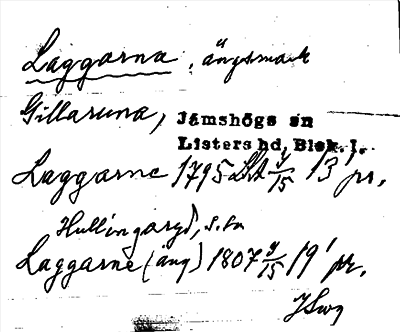 Laggarna, ängsmark
Gillaruna, Jämshögs sn
Listers hd, Blek. l.
Laggarne 1795 Lst 4/15 13 pr.
Hullingaryd, s. sn
Laggarne (äng) 1807 4/15 19 pr.
JSwg